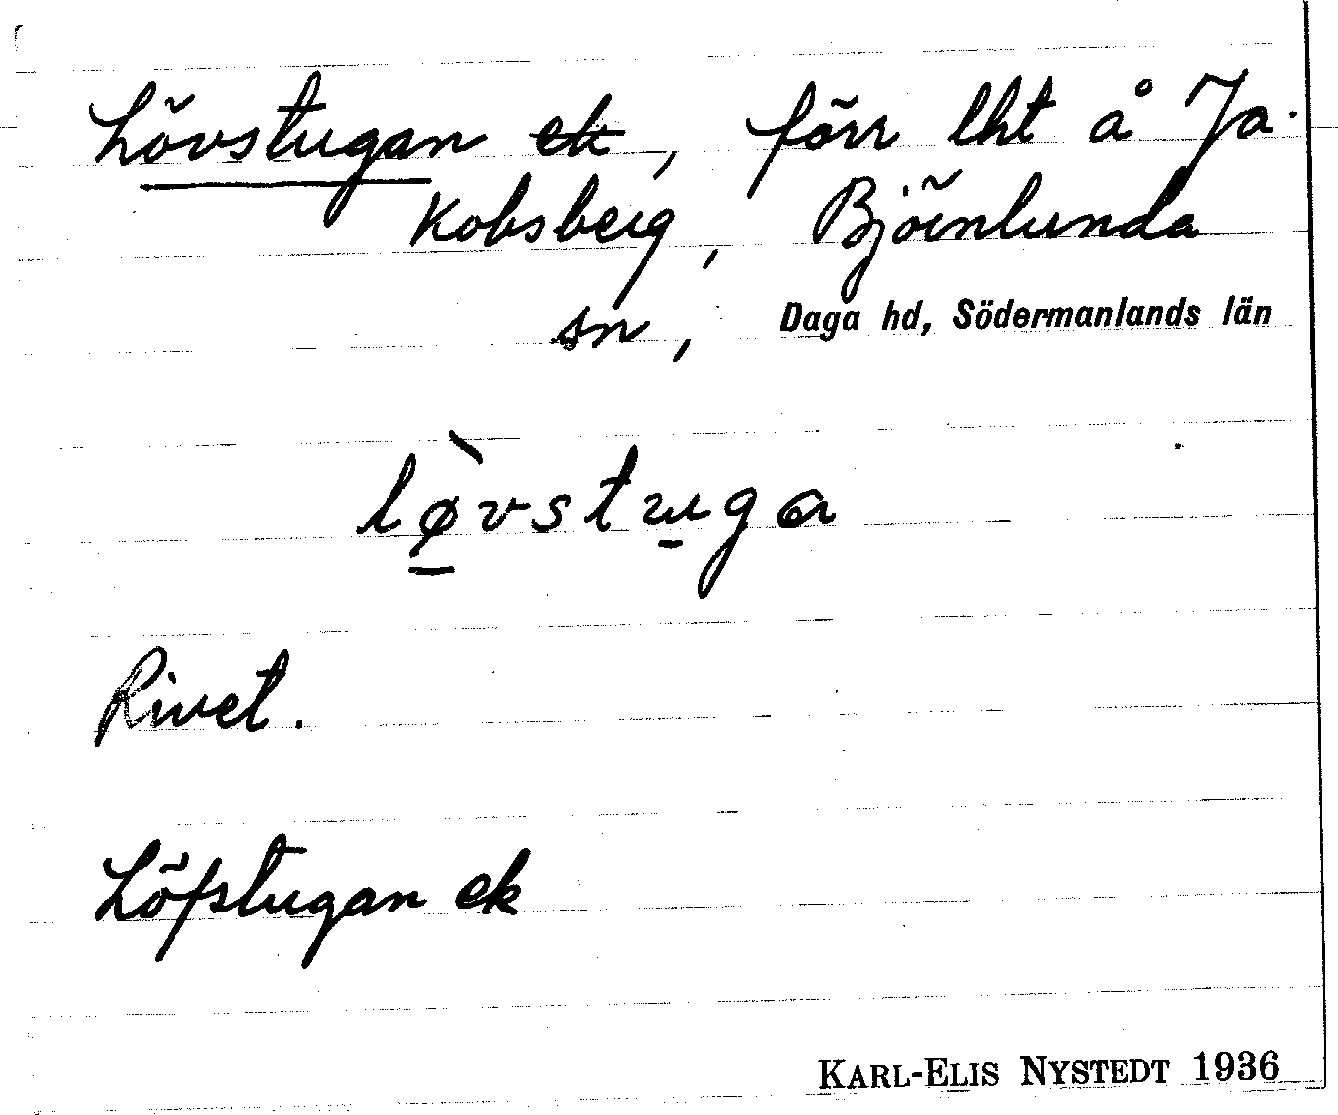 Lövstugan ek, förr lht å Ja-
kobsberg, Björnlunda
sn, Daga hd, Södermanlands län
lø̀vstuga
Rivet.
Löfstugan ek
KARL-ELIS NYSTEDT 1936